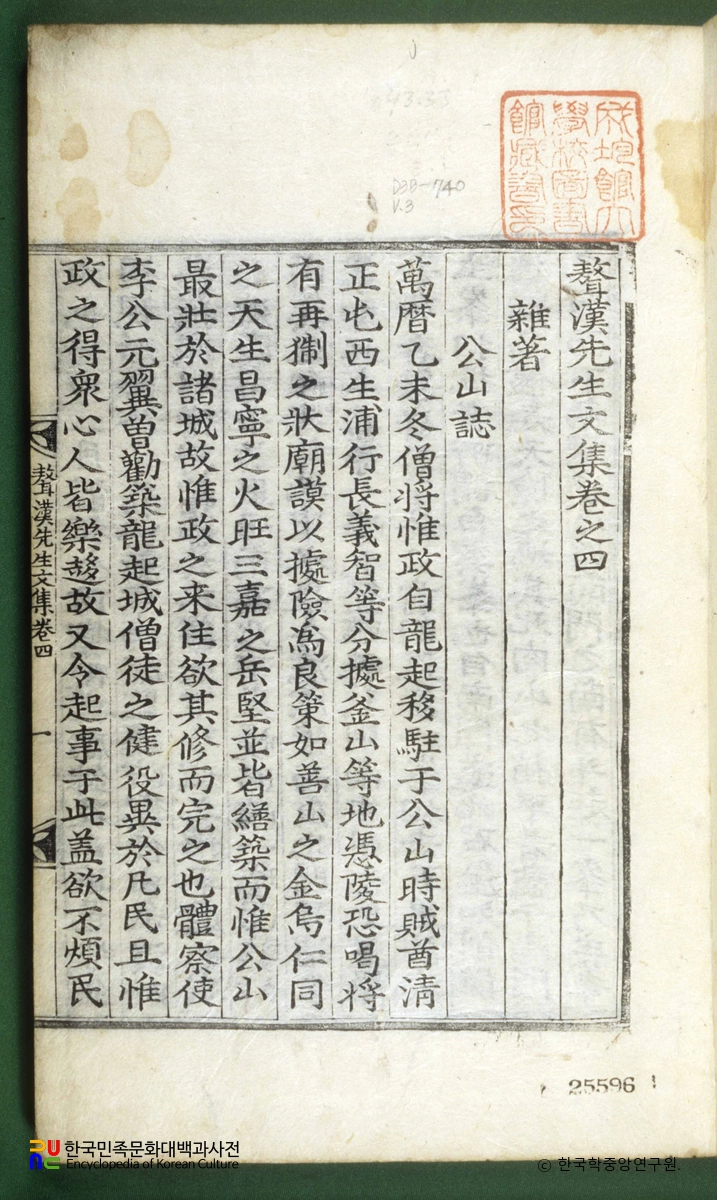 聱漢先生文集卷之四
雜著
公山誌
萬曆乙未冬僧将惟政自龍起移駐于公山時賊酋淸
正屯西生浦行長義智等分據釜山等地憑陵恐喝将
有再猘之状廟謨以據險爲良策如善山之金烏仁同
之天生昌寧之火旺三嘉之岳堅並皆繕築而惟公山
最壯於諸城故惟政之来住欲其修而完之也體察使
李公元翼曽勸築龍起城僧徒之健役異於凡民且惟
政之得衆心人皆樂趍故又令起事于此盖欲不煩民
聱漢先生文集卷四
一
成均館大
學校圖書
館藏書印
43.33
D3B-740
V.3
25596
한국민족문화대백과사전
Encyclopedia of Korean Culture
© 한국학중앙연구원.